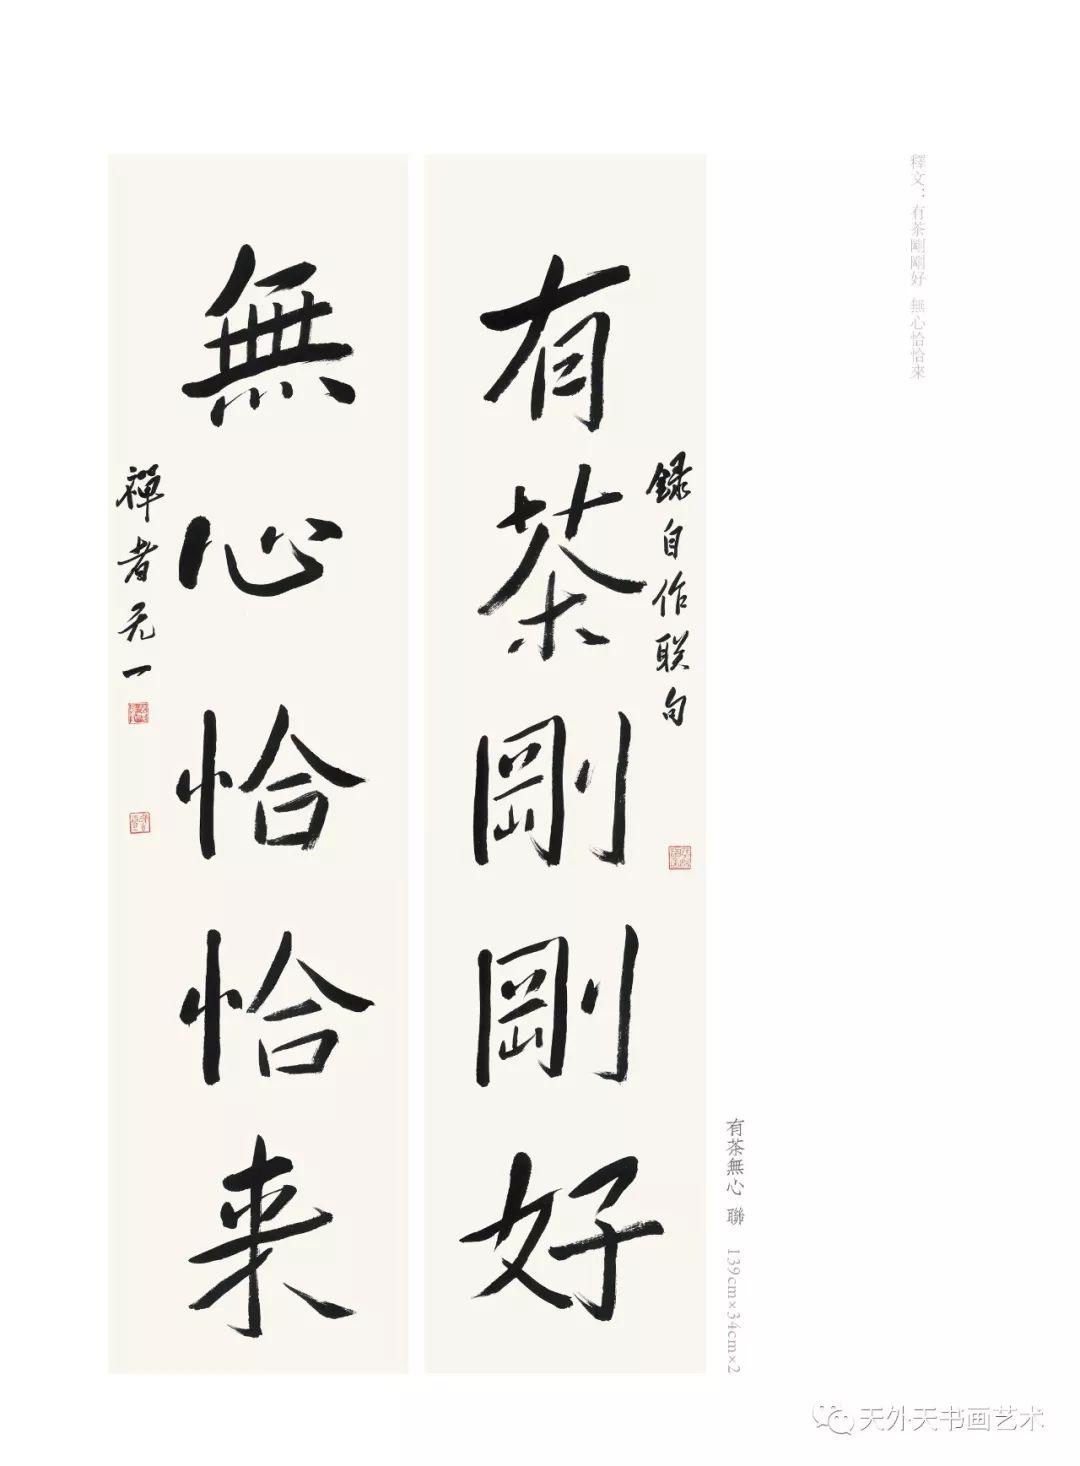 釋文：有茶剛剛好 無心恰恰來
有茶剛剛好
録自作联句
無心恰恰来
禪者无一
有茶無心 聯 139cm×34cm×2
天外天书画艺术